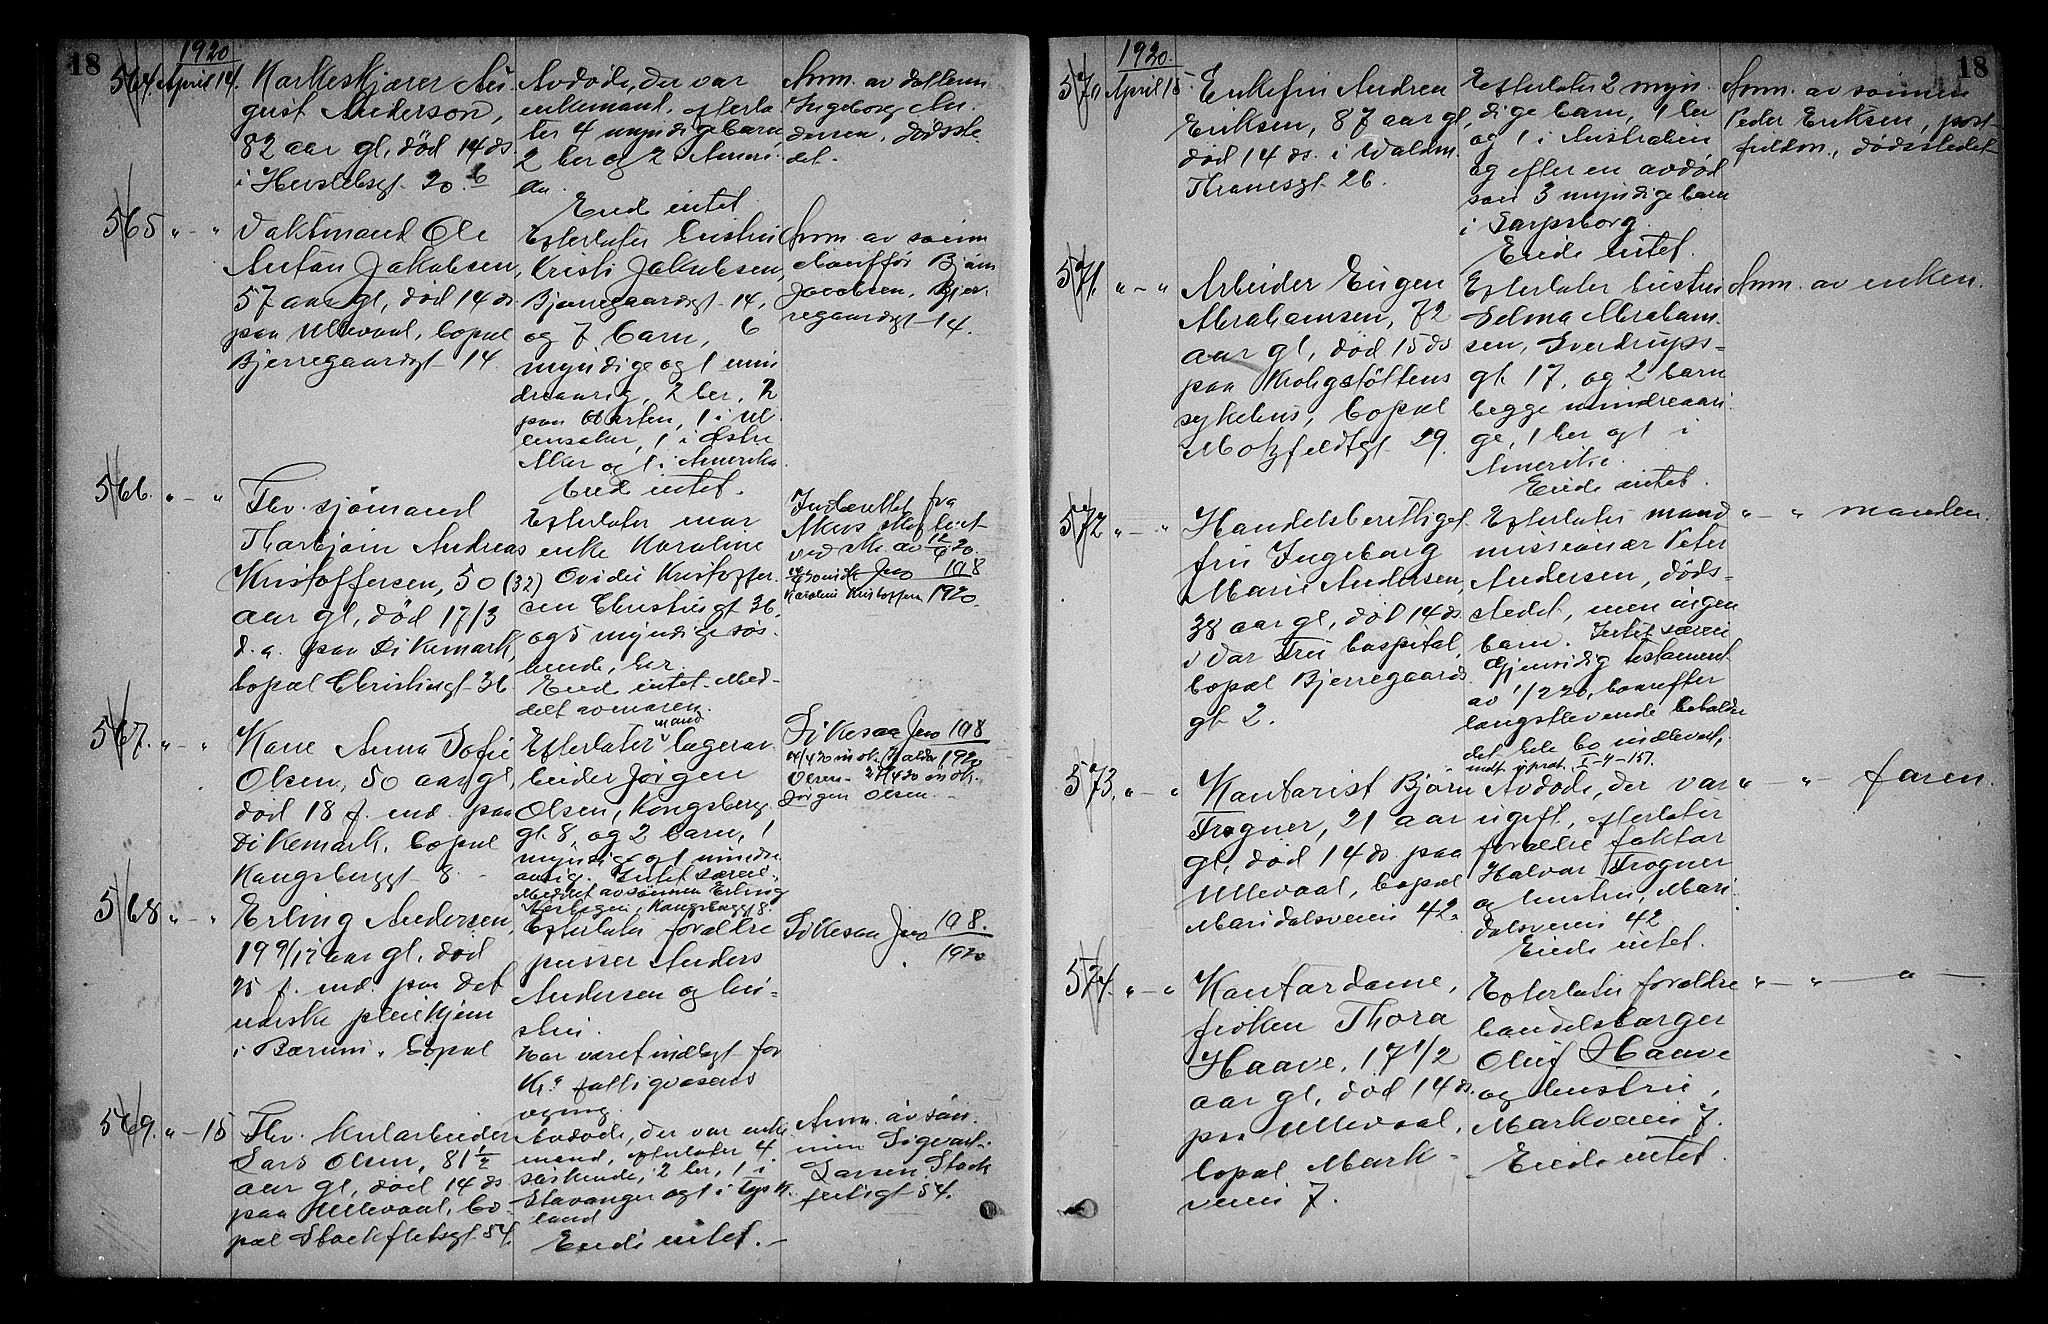 18
1920
564. April 14. Korkeskjærer Au-
gust Anderson,
82 aar gl, død 14 ds.
i Herslebsgt. 20.b
Avdøde, der var
enkemand, efterla-
ter 4 myndige barn
2 her og 2 i Ameri-
ka.
Eiede intet.
Anm. av datteren
Ingeborg An-
dersen, dødsste-
det.
565 " - " Vaktmand Ole
Anton Jakobsen,
57 aar gl, død 14 ds
paa Ullevaal, bopæl
Bjerregaardsgt. 14.
Efterlater hustru
Kristi Jakobsen,
Bjerregaardsgt. 14,
og 7 barn, 6
myndige og 1 min-
dreaarig, 2 her, 2
paa Hasten, 1 i Ul-
lensaker, 1 i Østre
Aker og 1 i Amerika.
Eied intet.
Anm. av sønnen
Bjørn
Jacobsen, Bjer-
regaardsgt. 14.
566. " - " Fhv. sjømand
Thorbjørn Andreas
Kristoffersen, 50 (32)
aar gl, død 17/3
d. a. paa Dikemark,
bopæl Christiesgt. 36
Efterlater mor
enke Karoline
Ovidie Kristoffer-
sen Christiesgt 36,
og 5 myndige søs-
kende, her.
Eied intet. Med-
delt av moren.
Indberettet fra
Akers
ved skr. av 12/4 20.
Jno 198
Karoline Kristoffersen 1920.
567. " - " Kone Anna Sofie
Olsen, 50 aar gl,
død 18 f. md. paa
Dikemark, bopæl
Kongsberggt 8.
Efterlater mand lagerar-
beider Jørgen
Olsen, Kongsberg-
gt. 8, og 2 barn, 1
myndige og 1 mindre-
aarig. Intet særeie.
Meddelt av sønnen Erling
Kongsberggt 8.
Likesaa Jno 198
1920
Olsen. 27/4 20 m ok.
Jørgen Olsen.
568 " - " Erling Andersen,
19 9/12 aar gl, død
25 f. md. paa det
norske pleiehjem
i Bærum. Bopæl
Efterlater forældre
pusser Anders
Andersen og hu-
stru.
Har været indlagt for
Kr.a fattigvæsens
regning.
Likesaa Jno 198.
1920
569. " - 15 Fhv. kularbeider
Lars Olsen, 81 1/2
aar gl, død 14 ds
paa Ullevaal, bo-
pæl Stockfletsgt. 54.
Avdøde, der var enke-
mand, efterlater 4
søskende, 2 her, 1 i
Stavanger og 1 i Tysk-
land
Eiede intet. -
Anm. av søn-
nen Sigvart
Larsen Stock-
fletsgt. 54.
18
1920.
570. April 15. Enkefru Andrea
Eriksen, 87 aar gl,
død 14 ds. i Waldm.
Thranesgt. 26.
Efterlater 2 myn-
dige barn, 1 her
og 1 i Australien
og efter en avdød
søn 3 myndige barn
i Sarpsborg.
Eiede intet.
Anm. av sønnen
Peder Eriksen, post-
fuldm., dødsstedet
571. " - " Arbeider Eugen
Abrahamsen, 72
aar gl, død 15 ds
paa Krohgstøttens
sykehus, bopæl
Motzfeldtsgt. 29.
Efterlater hustru
Selma Abraham-
sen, Sverdrups-
gt. 17, og 2 barn
begge mindreaari-
ge, 1 her og 1 i
Amerika.
Eiede intet.
Anm. av enken.
572 " - " Handelsberettiget
fru Ingeborg
Marie Andersen,
38 aar gl, død 14 ds.
i Vor Frue hospital,
bopæl Bjerregaards-
gt. 2.
Efterlater mand
missionær Peter
Andersen, døds-
stedet, men ingen
barn. Intet særeie
Gjensidig testament
av 1/2 20, hvorefter
længstlevende beholder
det hele bo indlevert,
indt. i prot. I-4-157.
" - " manden.
573. " - " Kontorist Bjørn
Frogner, 21 aar
gl, død 14 ds. paa
Ullevaal, bopæl
Maridalsveien 42.
Avdøde, der var
ugift, efterlater
forældre faktor
Halvor Frogner
og hustru, Mari-
dalsveien 42
Eiede intet.
" - " - faren.
574. " - " Kontordame,
frøken Thora
Haave, 17 1/2
aar gl, død 14 ds.
paa Ullevaal,
bopæl Mark-
veien 7.
Efterlater forældre
handelsborger
Oluf Haave
og hustru,
Markveien 7.
Eiede intet.
" - " - " -